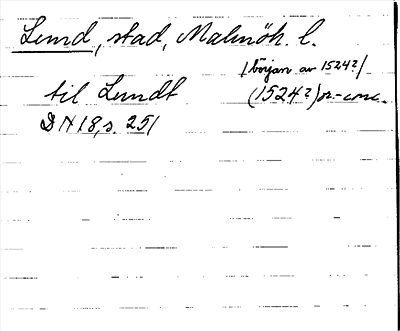 Lund, stad, Malmöh. l.
/början av 1524?/
til Lundt (1524?) or-conc.
DN 18, s. 251